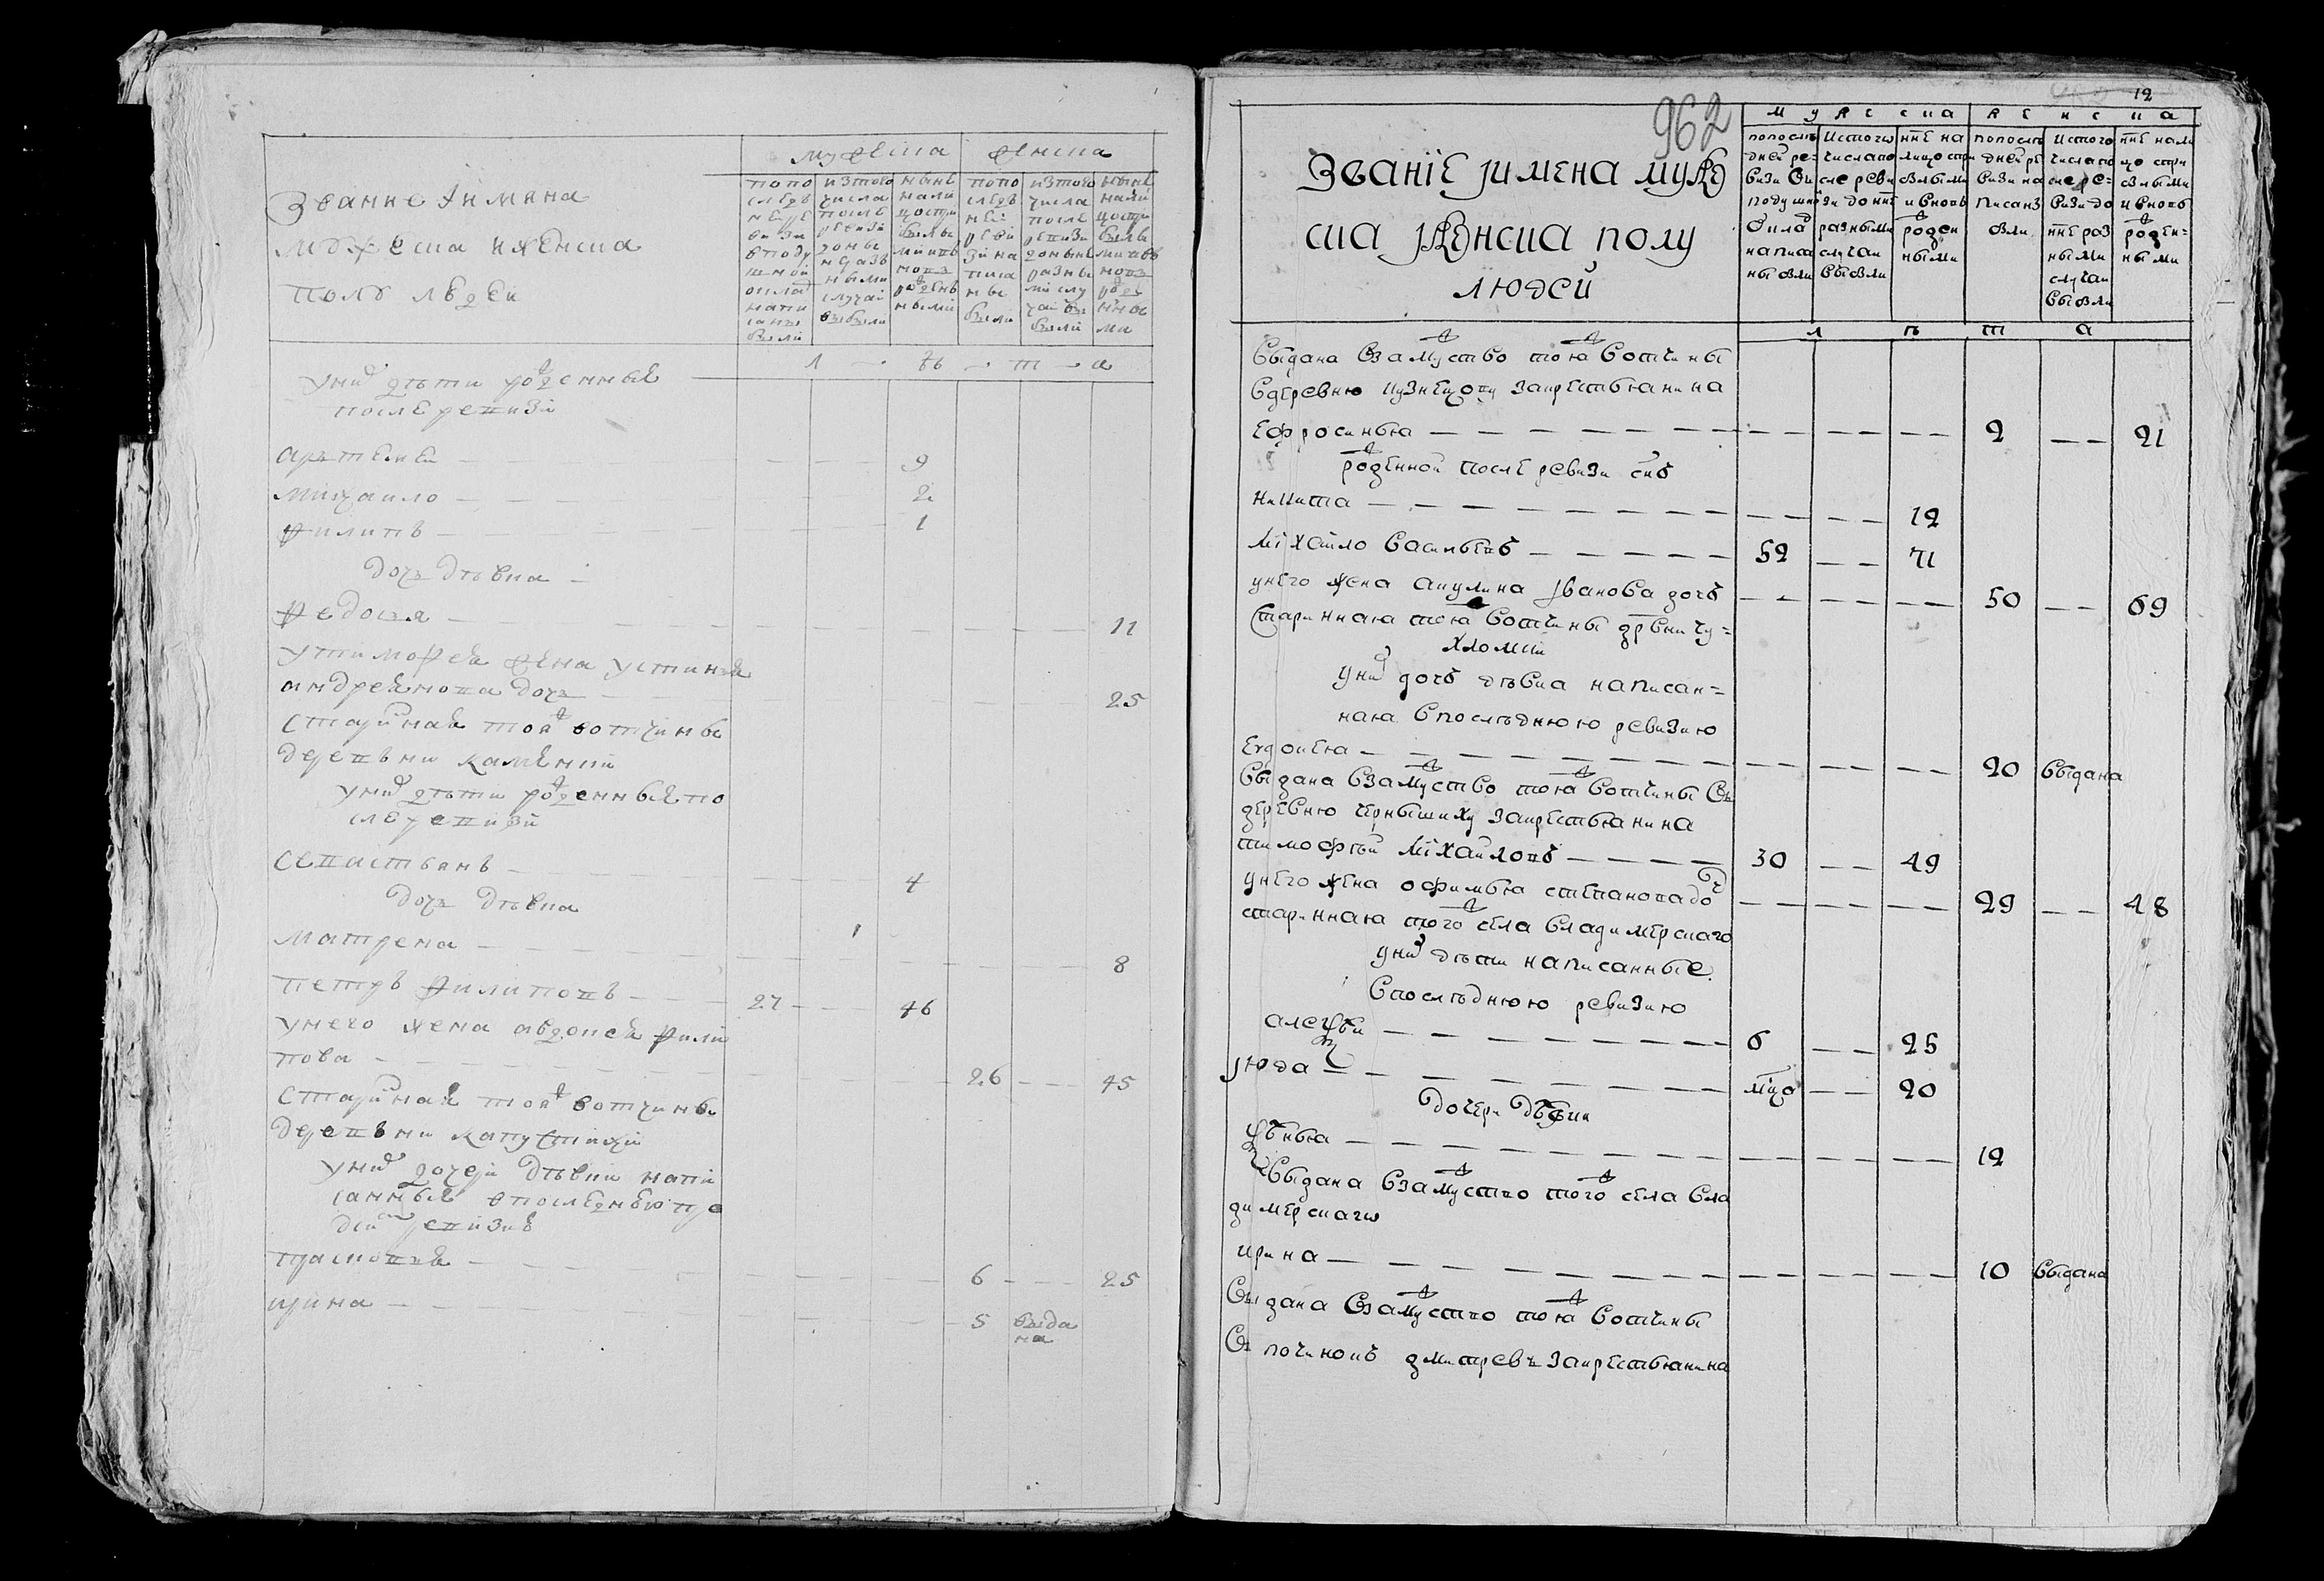 Звание Iимяна
мужеска и женска
полу людей
мужеска
женска
по по
следъ
ней ре
визи
в поду
шной
оклад
напи
саны
были
из того
числа
после
ревизи
до ны
не разъ
ными
случаи
выбыли
ныне
на ли
цо съ при
былы
ми и въ
новъ
рожден
ными
по по
след
ней
реви
зи на
писа
ны
были
из того
числа
после
ревизи
до ныне
разны
ми слу
чаи вы
были
ныне
на ли
цо съ при
былы
ми и въ
новъ
рожде
нны
ми
л ѣ т а
у них дѣти рожденные
после ревизи
артемей — 9
михаило — 2
филипъ — 1
дочь дѣвка
федосья — 11
у тимофея жена устинья
андреянова дочь — 25
старинная тоя ж вотчины
деревни каменки
у них дѣти рожденные по
сле ревизи
севастьянъ — 4
дочь дѣвка
матрена — 8
петръ филиповъ — 27 — 46
у него жена авдотья фили
пова — 26 — 45
старинная тоя ж вотчины
деревни капустихи
у них дочери дѣвки напи
санные в последнею пре
ревизию
прасковья — 6 — 25
ирина — 5 выда
на
962
12
Званiе Iимена муже
ска Iженска полу
людей
м у ж е с к а
ж е н с к а
по послѣ
дней ре-
визи въ
подушно
оклад
написа
ны были
ис того
числа по
сле реви
зи до ннѣ
разными
случаи
выбыли
ннѣ на
лицо съ при
былыми
и вновь
рожден
ными
по послѣ
дней ре
визи на
писаны
были
ис того
числа по
сле ре-
визи до
ннѣ раз
ными
случаи
выбыли
ннѣ на ли
цо съ при
былыми
и вновь
рожден-
ными
л ѣ т а
выдана в замужство тоя ж вотчины
в деревню кузнецову за крестьянина
ефросинья — 2 — 21
рожденной после ревизи снъ
никита — 12
михайло васильевъ — 52 — 71
у него жена акулина Iванова дочь — 50 — 69
стариннаю тоя ж вотчины дрвни чу-
хломки
у них дочь дѣвка написан-
ная в последнюю ревизию
евдокея — 20 выдана
выдана в замужство тоя ж вотчины въ
деревню чернышиху за крестьянина
тимофѣй михайловъ — 30 — 49
у него жена офимья степанова доч — 29 — 48
старинная того ж села владимерскаго
у них дѣти написанные
в последнюю ревизию
алексѣй — 6 — 25
Iюда — мцо — 20
дочери дѣвки
ксенья — 12
выдана в замужство того ж села вла
димерскаго
ирина — 10 выдана
выдана в замужство тоя ж вотчины
въ починокъ дмитревъ за крестьянина